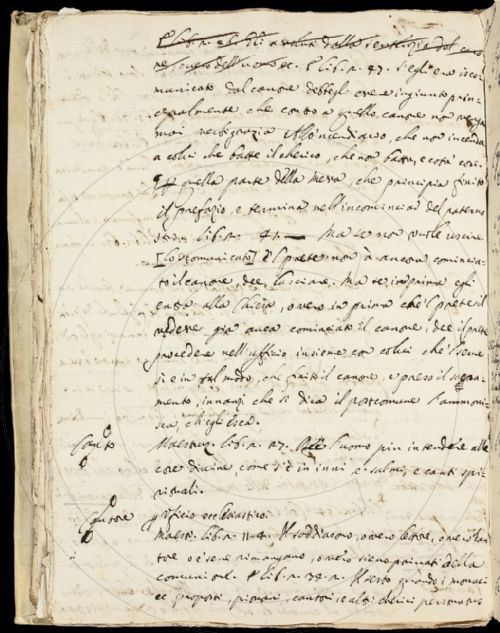 E lib. n. 26. Chi a voluti dalla sentenzia del cano
ne, ovvero dell'uomo ec. E lib. n. 47. s'egli era isco
municato dal canone debbegli essere ingiunto prin
cipalmente, che contro a quello canone non venga
mai nell'incendiario, che non incenda
a colui che batte il cherico, che non batta, e cotai cose.
quella parte della Messa, che principia finito
il prefazio, e termina nell'incominciar del paterno
stro. lib. n. 41. Ma se non vuole uscire
[lo scomunicato] e 'l prete non à ancora comincia
to il canone, dee lasciare. Ma se in prima egli
entra alla Chiesa, ovvero in prima che 'l prete il
vedesse già avea cominciato il canone, dee il prete
procedere nell'ufficio insieme con colui che 'l serve
sì e in tal modo, che finito il canone, e preso il sagra
mento, innanzi che si dica il postcomune l'ammoni
sca, ch'egli esca.
Canto
Maestruz. lib. n. 27. Dee l'uomo più intendere alle
cose divine, come s'è in inni, e salmi, e canti spi
rituali.
Cantore
ufficio ecclesiastico.
Maestr. lib. n. Il soddiacono, ovvero lettore, ovver can
tore o essere rimangano, ovvero sieno privati della
comunione. E lib. n. 34. n. Il sesto quando i monaci
ec. proposti, piovani, cantori, e altri cherici personati